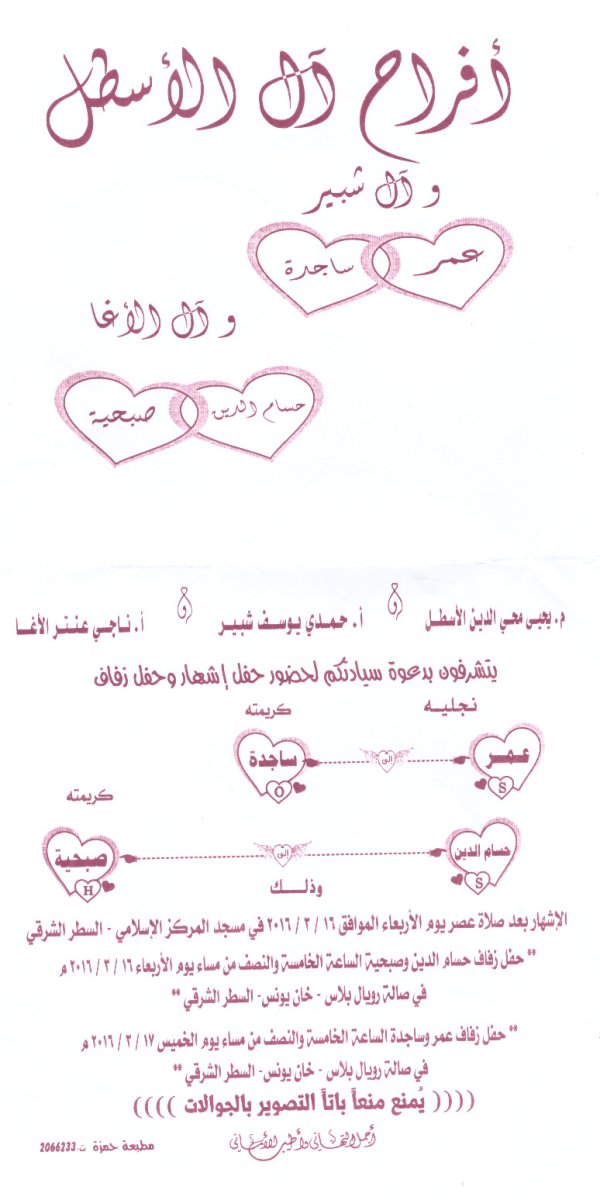 أفراح آل الأسطل
و آل شبير
عمر ساجدة
و آل الأغا
حسام الدين صبحية
م. يحيى محي الدين الأسطل و أ. حمدي يوسف شبير و أ. ناجي عنتر الأغا
يتشرفون بدعوة سيادتكم لحضور حفل إشهار وحفل زفاف
نجليه كريمته
عمر إلى ساجدة
S O
كريمته
حسام الدين إلى صبحية
S H
وذلك
الإشهار بعد صلاة عصر يوم الأربعاء الموافق ١٦ / ٣ / ٢٠١٦ في مسجد المركز الإسلامي - السطر الشرقي
** حفل زفاف حسام الدين وصبحية الساعة الخامسة والنصف من مساء يوم الأربعاء ١٦ / ٣ / ٢٠١٦ م
في صالة رويال بلاس - خان يونس - السطر الشرقي **
** حفل زفاف عمر وساجدة الساعة الخامسة والنصف من مساء يوم الخميس ١٧ / ٣ / ٢٠١٦ م
في صالة رويال بلاس - خان يونس - السطر الشرقي **
(((( يُمنع منعاً باتاً التصوير بالجوالات ))))
أجمل التهاني وأطيب الأماني
مطبعة حمزة ت: 2066233